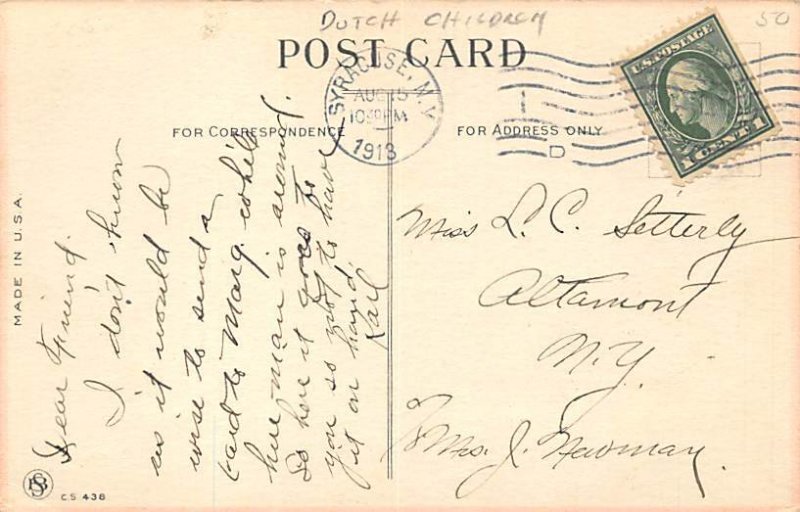 DUTCH CHILDREN
50
POST CARD
SYRACUSE, N.Y.
AUG 15
10 30 PM
1913
D
U.S. POSTAGE
1 CENT 1
FOR CORRESPONDENCE
FOR ADDRESS ONLY
MADE IN U.S.A.
Dear Friend.
I don't know
as it would be
wise to send a
card to Marg. while
her man is around.
So here it goes to
you so to have
it on hand.
Karl
Miss L. C. Setterly
Altamont
N.Y.
Mrs. J. Newman.
C.S 438